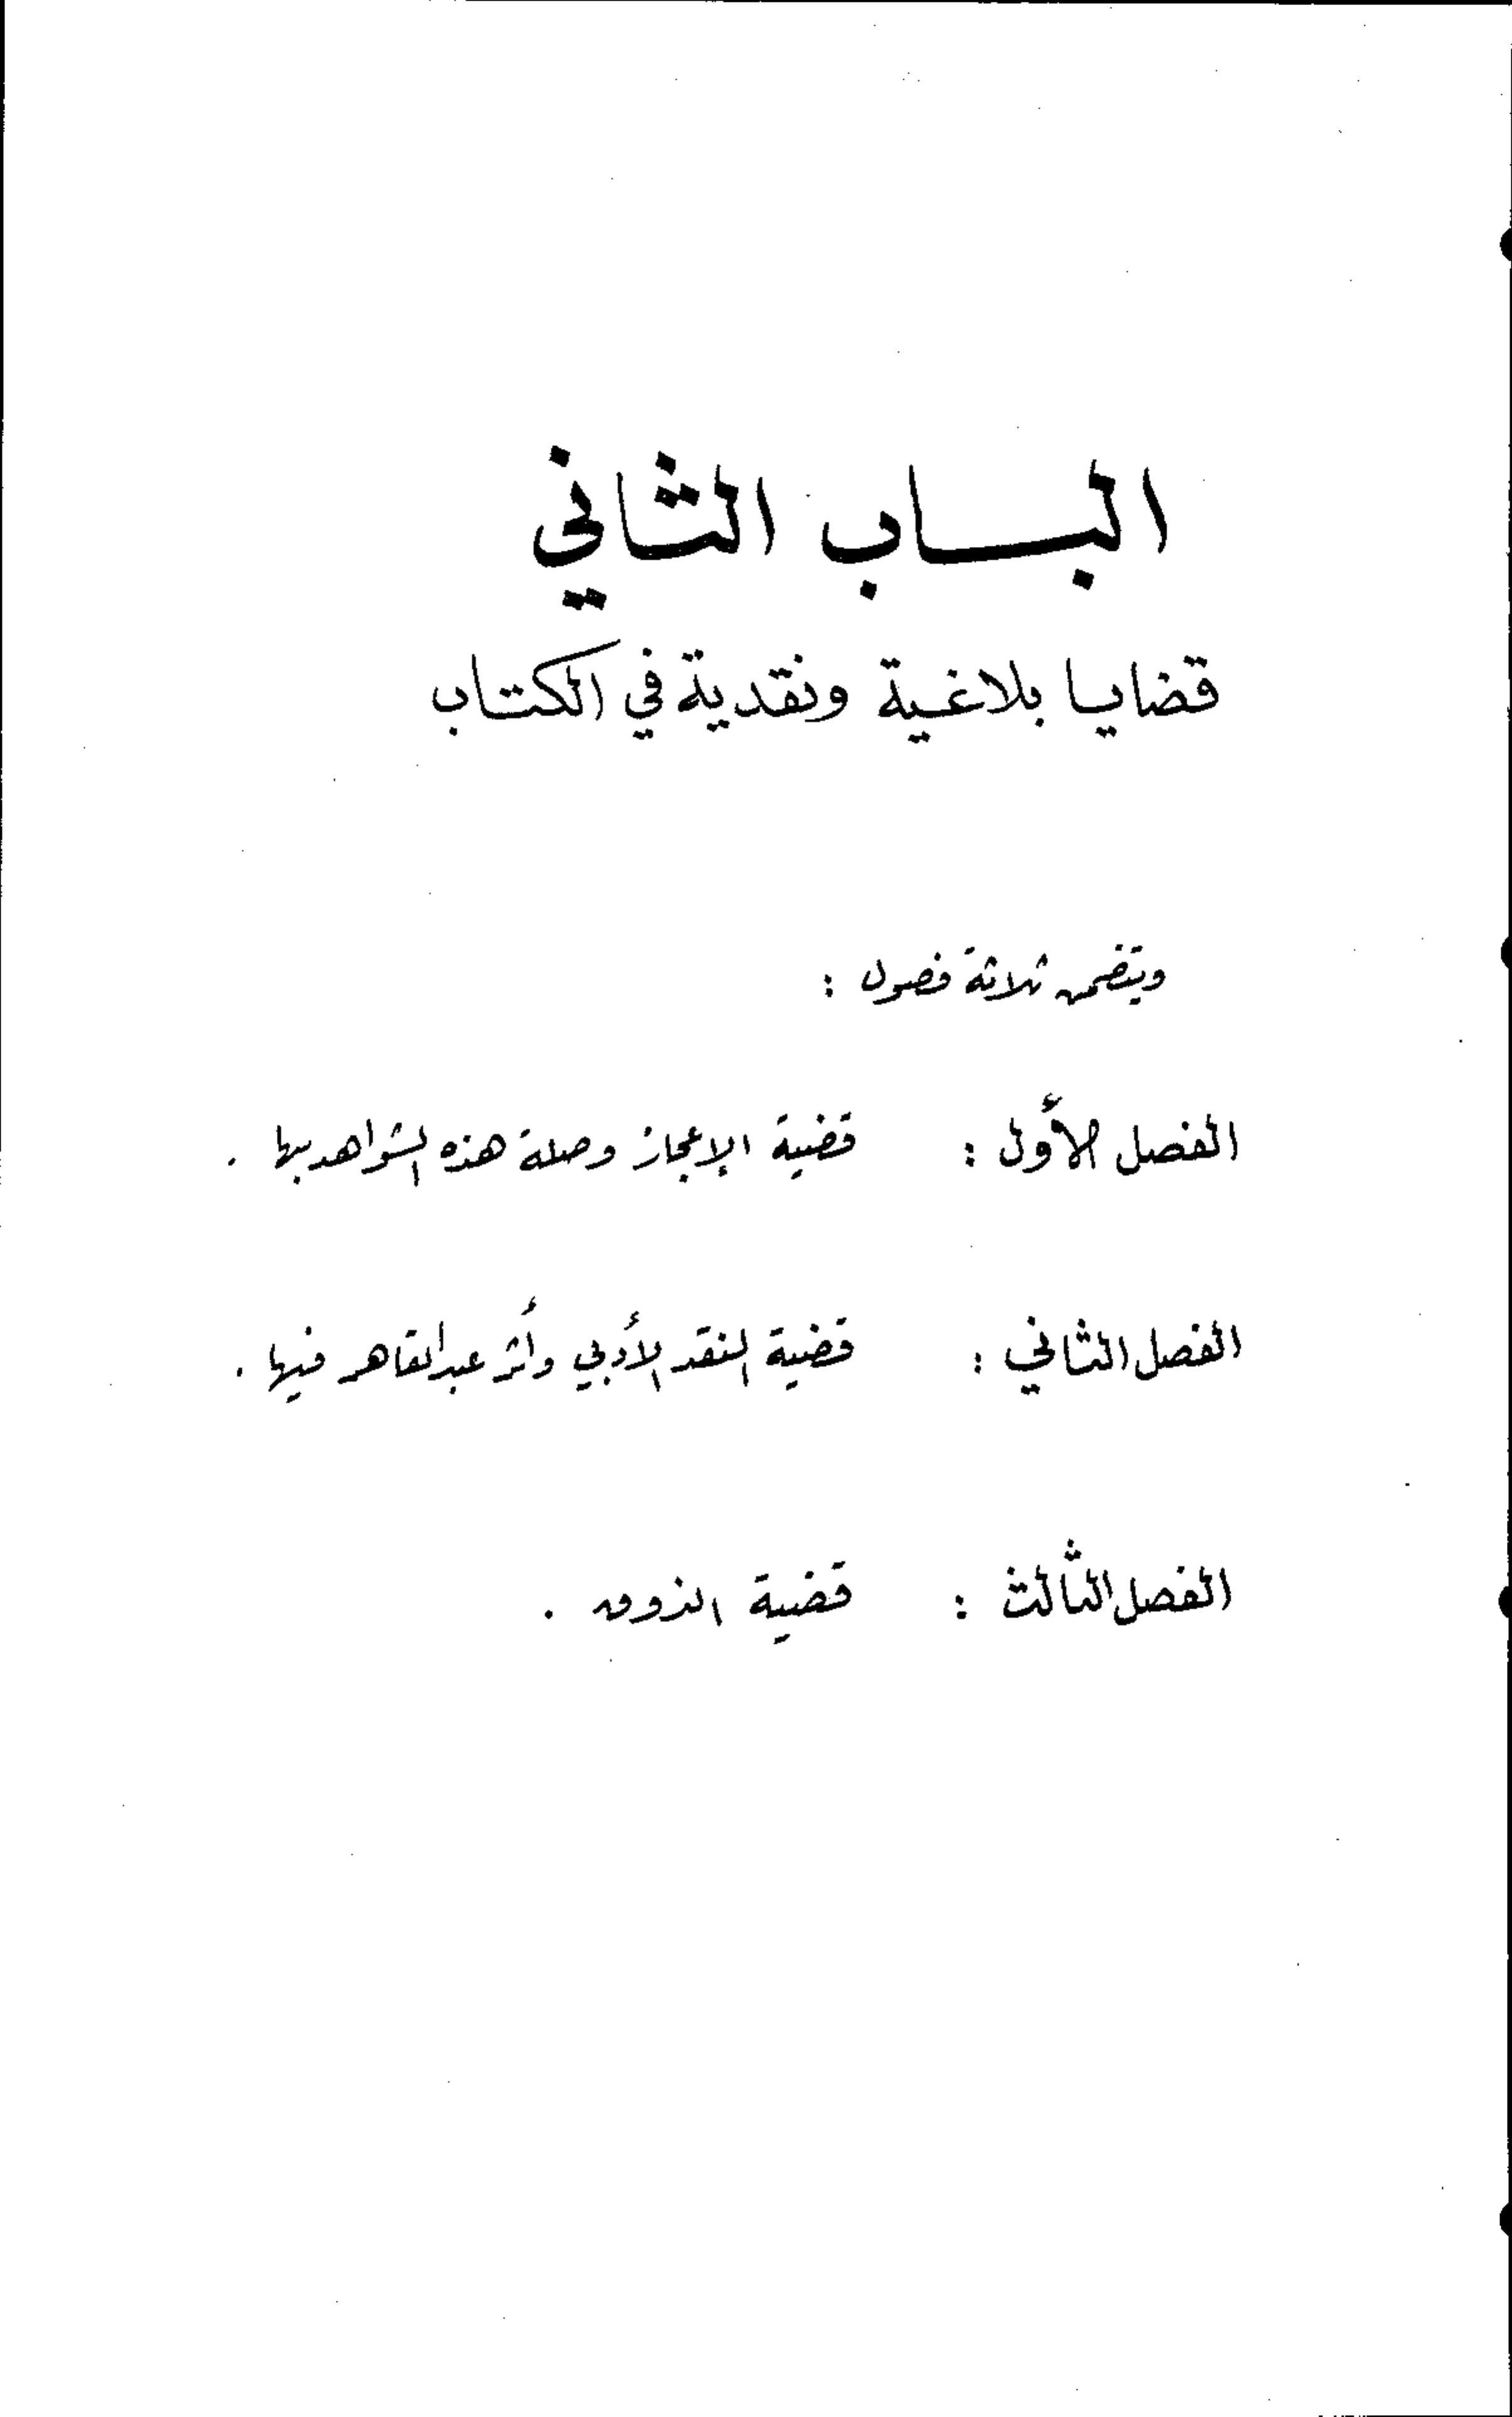 الباب الثاني
قضايا بلاغية ونقدية في الكتاب
ويتضمن ثلاثة فصول :
الفصل الأول : قضية الإعجاز وصلة هذه الشواهد بها .
الفصل الثاني : قضية النقد الأدبي وأثر عبد القاهر فيها .
الفصل الثالث : قضية الذوق .